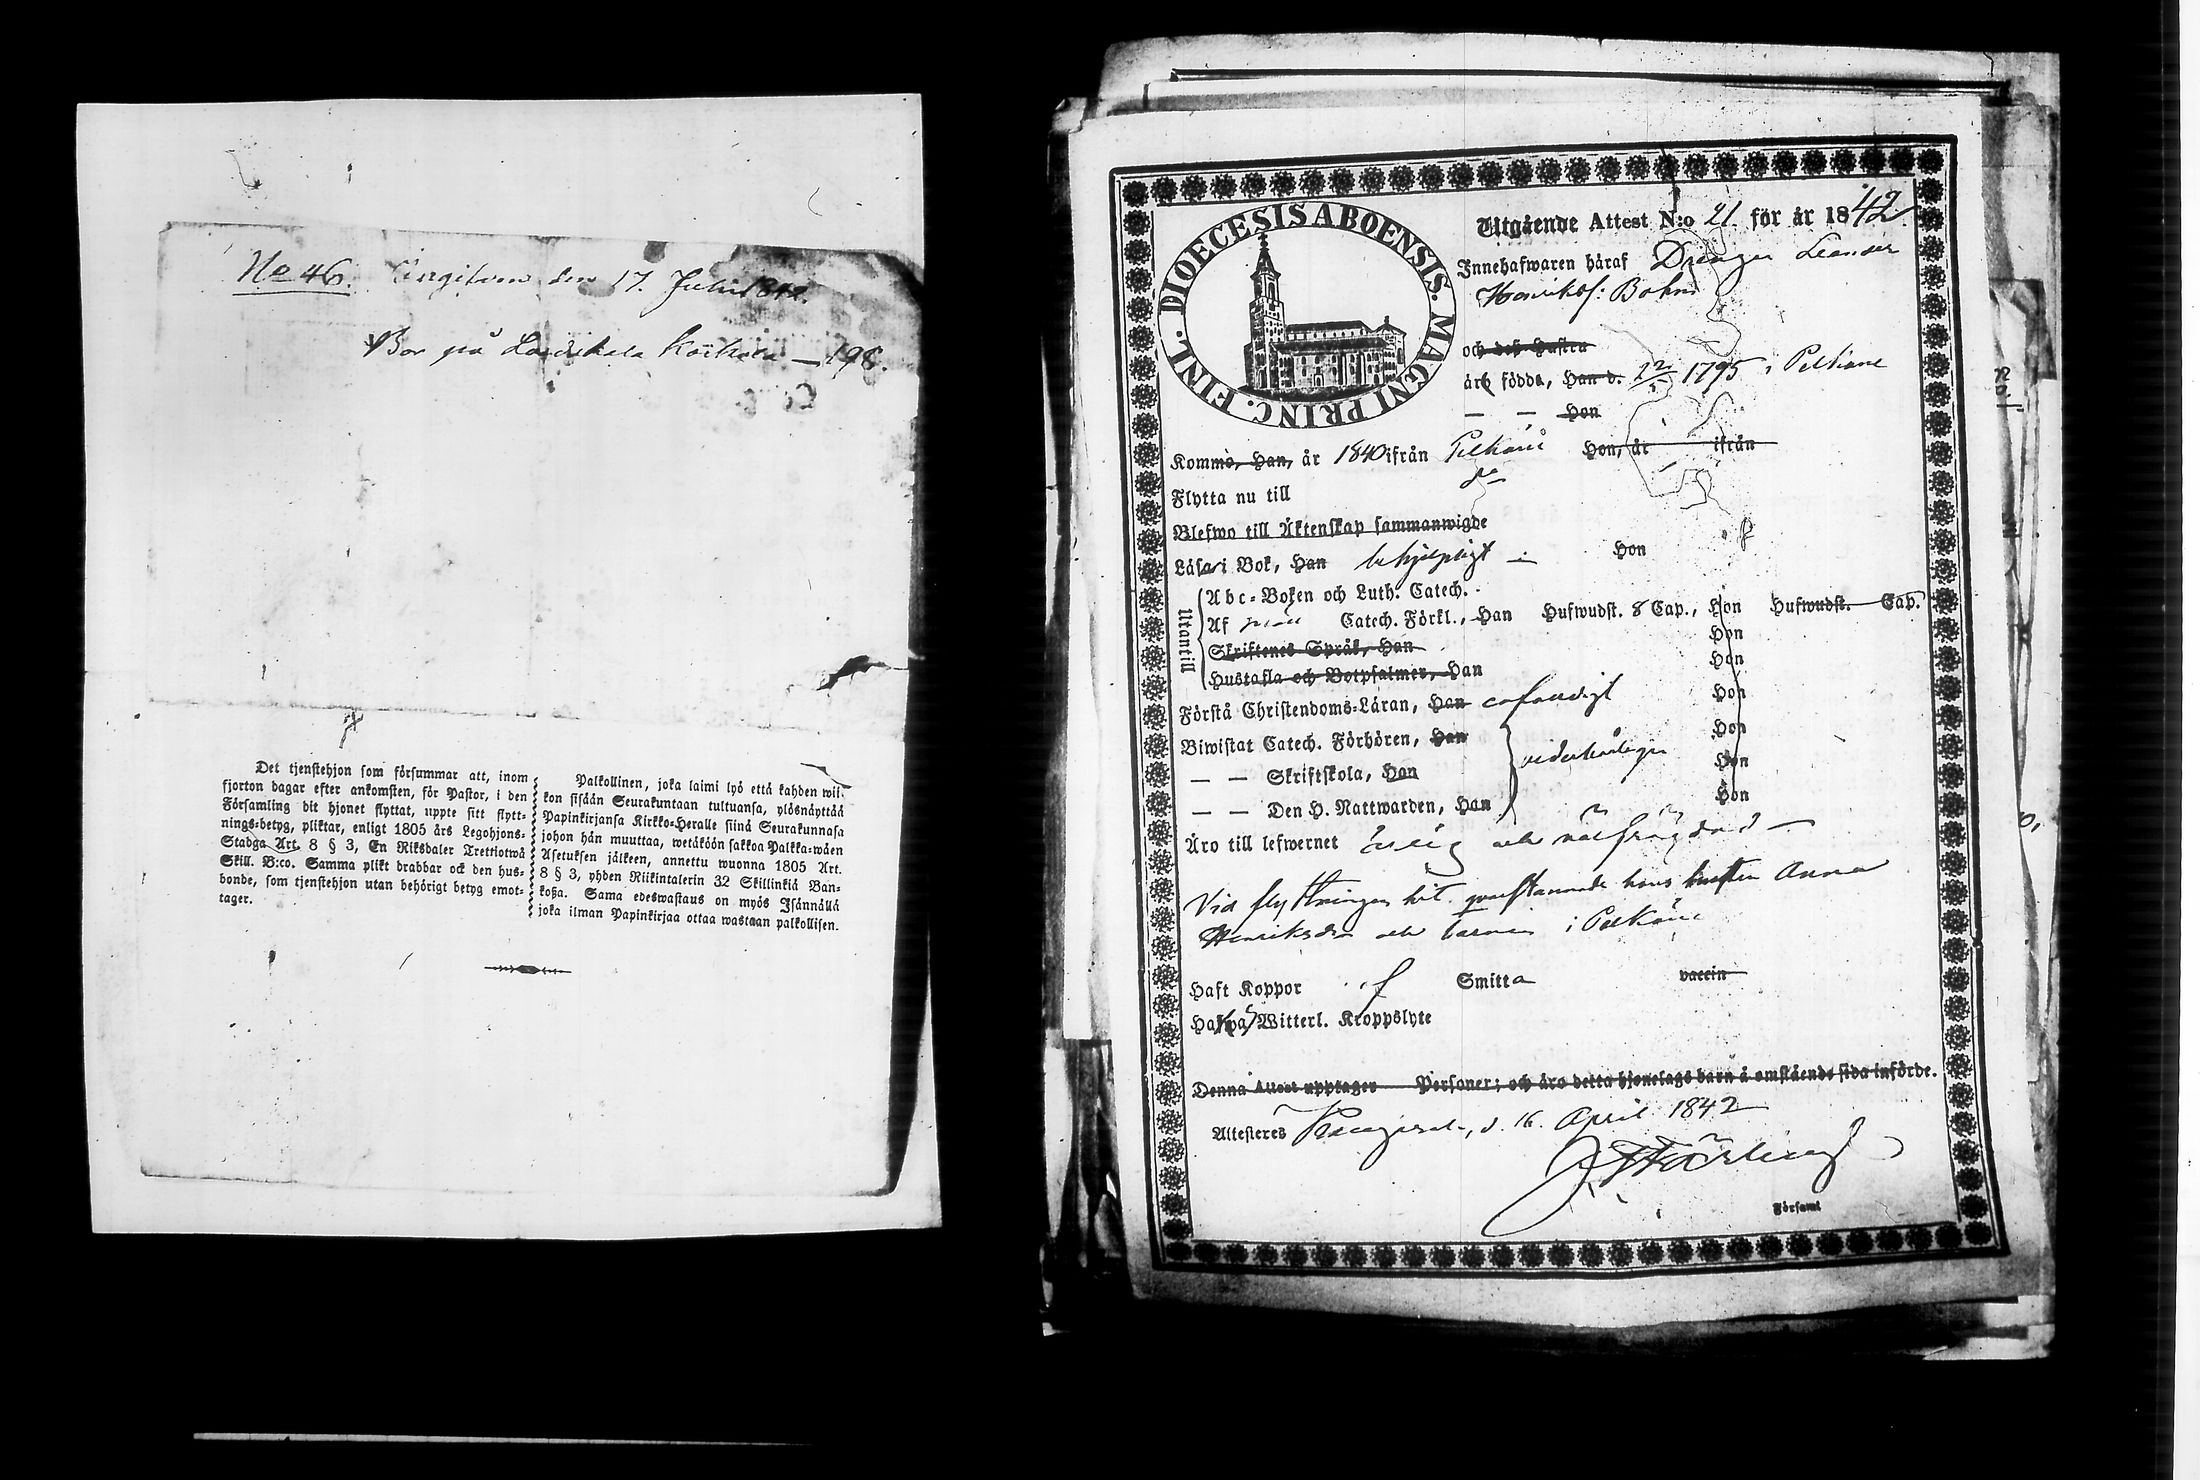 No 46. Ingifven den 17. Julii 1842.
Bor på Laidikala Korkala — 198.
Det tjenstehjon som försummar att, inom
fjorton dagar efter ankomsten, för Pastor, i den
Församling dit hjonet flyttat, uppte sitt flytt-
nings-betyg, pliktar, enligt 1805 års Legohjons-
Stadga Art. 8 § 3, En Riksdaler Trettiotwå
Skill. B:co. Samma plikt drabbar ock den hus-
bonde, som tjenstehjon utan behörigt betyg emot-
tager.
Palkollinen, joka laimi lyö että kahden wii-
kon sisään Seurakuntaan tultuansa, ylösnäyttää
Papinkirjansa Kirkko-Heralle siinä Seurakunnasa
johon hän muuttaa, wetäköön sakkoa Palkka-wäen
Asetuksen jälkeen, annettu wuonna 1805 Art.
8 § 3, yhden Riikintalerin 32 Skillinkiä Ban-
koßa. Sama edeswastaus on myös Isännällä
joka ilman Papinkirjaa ottaa wastaan palkollisen.
DIOECESIS ABOENSIS. MAGNI PRINC. FINL.
Utgående Attest N:o 21 för år 1842
Innehafwaren häraf Drängen Leander
Henriksf: Bohm
och deß Hustru
äro födde, Han d. 22/5 1795 i Pelkäne
— — Hon
Komme, Han, år 1840 ifrån Pelkäne Hon, år ifrån
Flytta nu till do
Blefwo till Äktenskap sammanwigde
Läsa i Bok, Han behjelpligt — Hon
Utantill
Abc-Boken och Luth. Catech.
Af Catech. Förkl., Han Hufwudst. 8 Cap., Hon Hufwudst. Cap.
Skriftenes Språk, Han Hon
Hustafla och Botpsalmer, Han Hon
Förstå Christendoms-Läran, Han Hon
Biwistat Catech. Förhören, Han Hon
— — Skriftskola, Han Hon
— — Den H. Nattwarden, Han Hon
Äro till lefwernet ärlig och välfrägdad —
Vid flyttningen hit qvarstannade hans hustru Anna
Henriksdr och barnen i Pelkäne
Haft Koppor Smitta vaccin
Hafwa Witterl. Kroppslyte
Denna Attest upptager Personer; och äro detta hjonelags barn å omstående sida införde.
Attesteras Kangasala, d. 16 April 1842
Församl